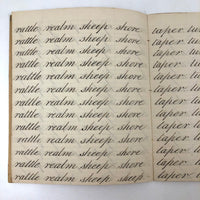 rattle realm sheep shore
rattle realm sheep shore
rattle realm sheep shore
rattle realm sheep shore
rattle realm sheep shore
rattle realm sheep shore
rattle realm sheep shore
rattle realm sheep shore
rattle realm sheep shore
rattle realm sheep shore
rattle realm sheep shore
rattle realm sheep sheep
taper
taper
taper
taper
taper
taper
taper
taper
taper
taper
taper
taper